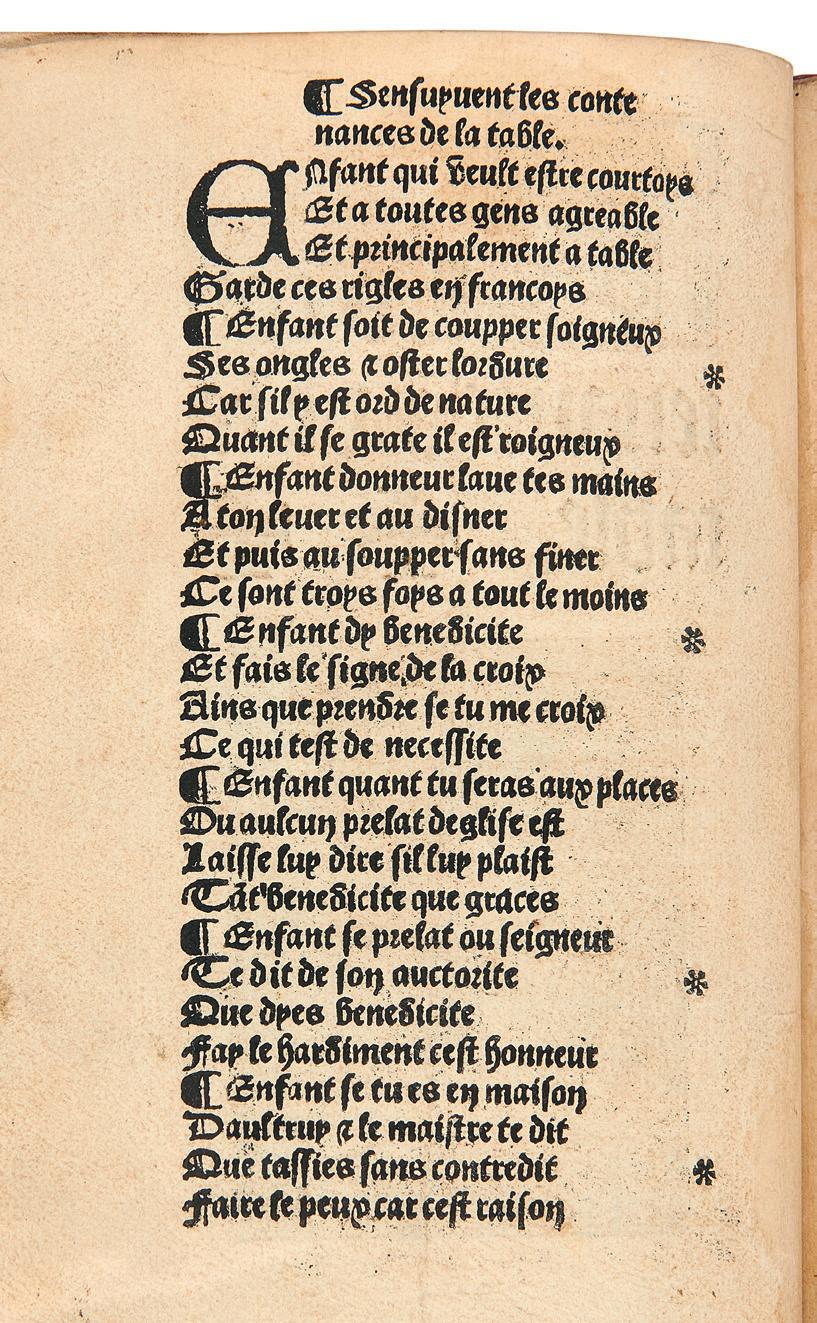 ¶ Sensuyuent les conte
nances de la table.
ENfant qui veult estre courtoys
Et a toutes gens agreable
Et principalement a table
Garde ces rigles en francoys
¶ Enfant soit de coupper soigneux
Ses ongles & oster lordure
Car sil y est ord de nature
Quant il se grate il est roigneux
¶ Enfant donneur laue tes mains
A ton leuer et au disner
Et puis au soupper sans finer
Ce sont troys foys a tout le moins
¶ Enfant dy benedicite
Et fais le signe de la croix
Ains que prendre se tu me croix
Ce qui test de necessite
¶ Enfant quant tu seras aux places
Ou aulcun prelat deglise est
Laisse luy dire sil luy plaist
Tāt benedicite que graces
¶ Enfant se prelat ou seigneur
Te dit de son auctorite
Que dyes benedicite
Fay le hardiment cest honneur
¶ Enfant se tu es en maison
Daultruy & le maistre te dit
Que tassies sans contredit
Faire le peux car cest raison